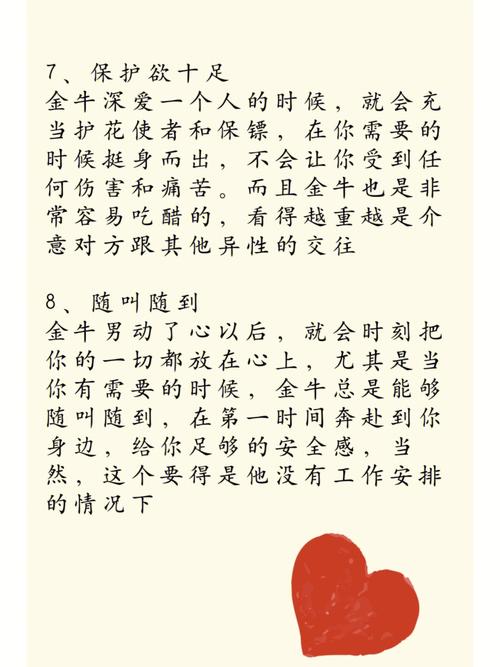 7、保护欲十足
金牛深爱一个人的时候，就会充
当护花使者和保镖，在你需要的
时候挺身而出，不会让你受到任
何伤害和痛苦。而且金牛也是非
常容易吃醋的，看得越重越是介
意对方跟其他异性的交往
8、随叫随到
金牛男动了心以后，就会时刻把
你的一切都放在心上，尤其是当
你有需要的时候，金牛总是能够
随叫随到，在第一时间奔赴到你
身边，给你足够的安全感，当
然，这个要得是他没有工作安排
的情况下